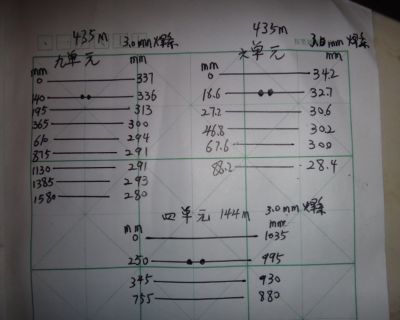 435m 3.0mm 焊条
九单元
mm mm
0 337
140 336
195 313
365 300
610 294
875 291
1130 291
1385 293
1580 280
435m
六单元 3.0mm 焊条
mm mm
0 34.2
18.6 32.7
27.2 30.6
46.8 30.2
67.6 30.0
88.2 28.4
四单元 144m 3.0mm 焊条
mm mm
0 1035
250 995
345 930
755 880